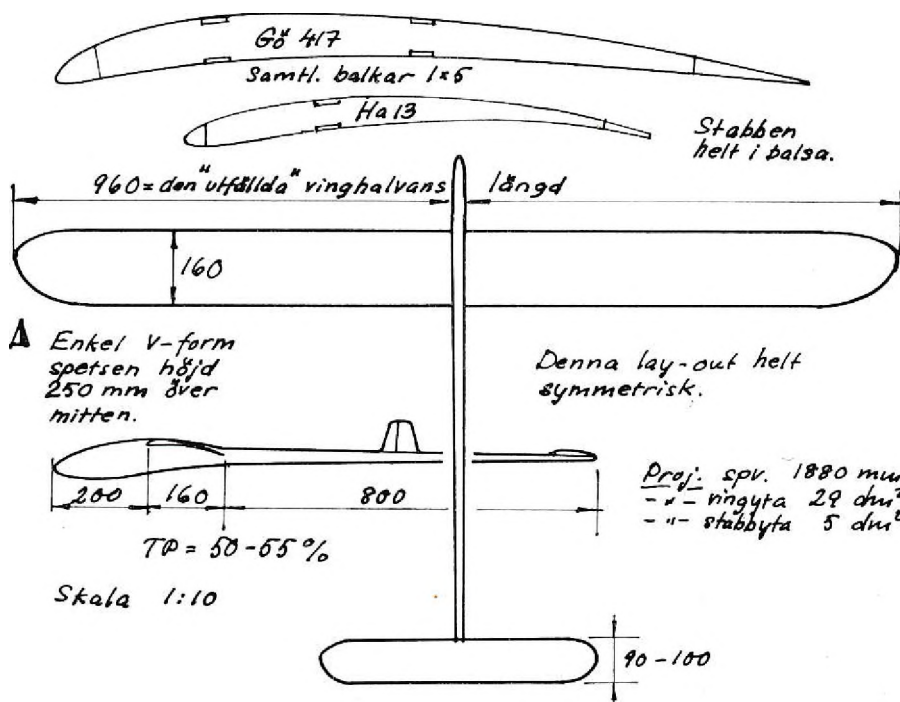 Gö 417
Samtl. balkar 1×5
Ha 13
Stabben
helt i balsa.
960 = den "utfällda" vinghalvans längd
160
Enkel V-form
spetsen höjd
250 mm över
mitten.
Denna lay-out helt
symmetrisk.
200 160 800
Proj. spv. 1880 mm
- " - vingyta 29 dm²
- " - stabbyta 5 dm²
TP = 50-55%
Skala 1:10
90-100